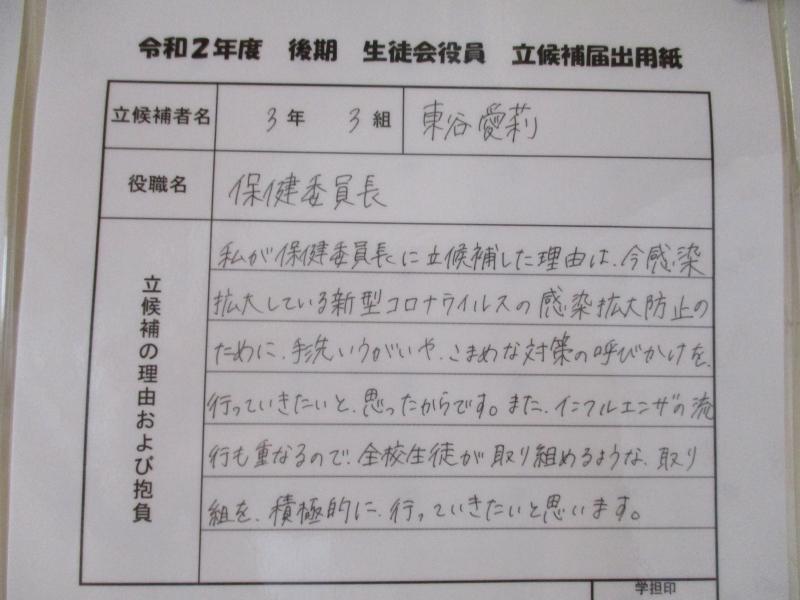 令和2年度 後期 生徒会役員 立候補届出用紙
立候補者名 3年 3組 東谷愛莉
役職名 保健委員長
立候補の理由および抱負
私が保健委員長に立候補した理由は、今感染
拡大している新型コロナウイルスの感染拡大防止の
ために、手洗いうがいや、こまめな対策の呼びかけを、
行っていきたいと、思ったからです。また、インフルエンザの流
行も重なるので、全校生徒が取り組めるような、取り
組を、積極的に、行っていきたいと思います。
学担印